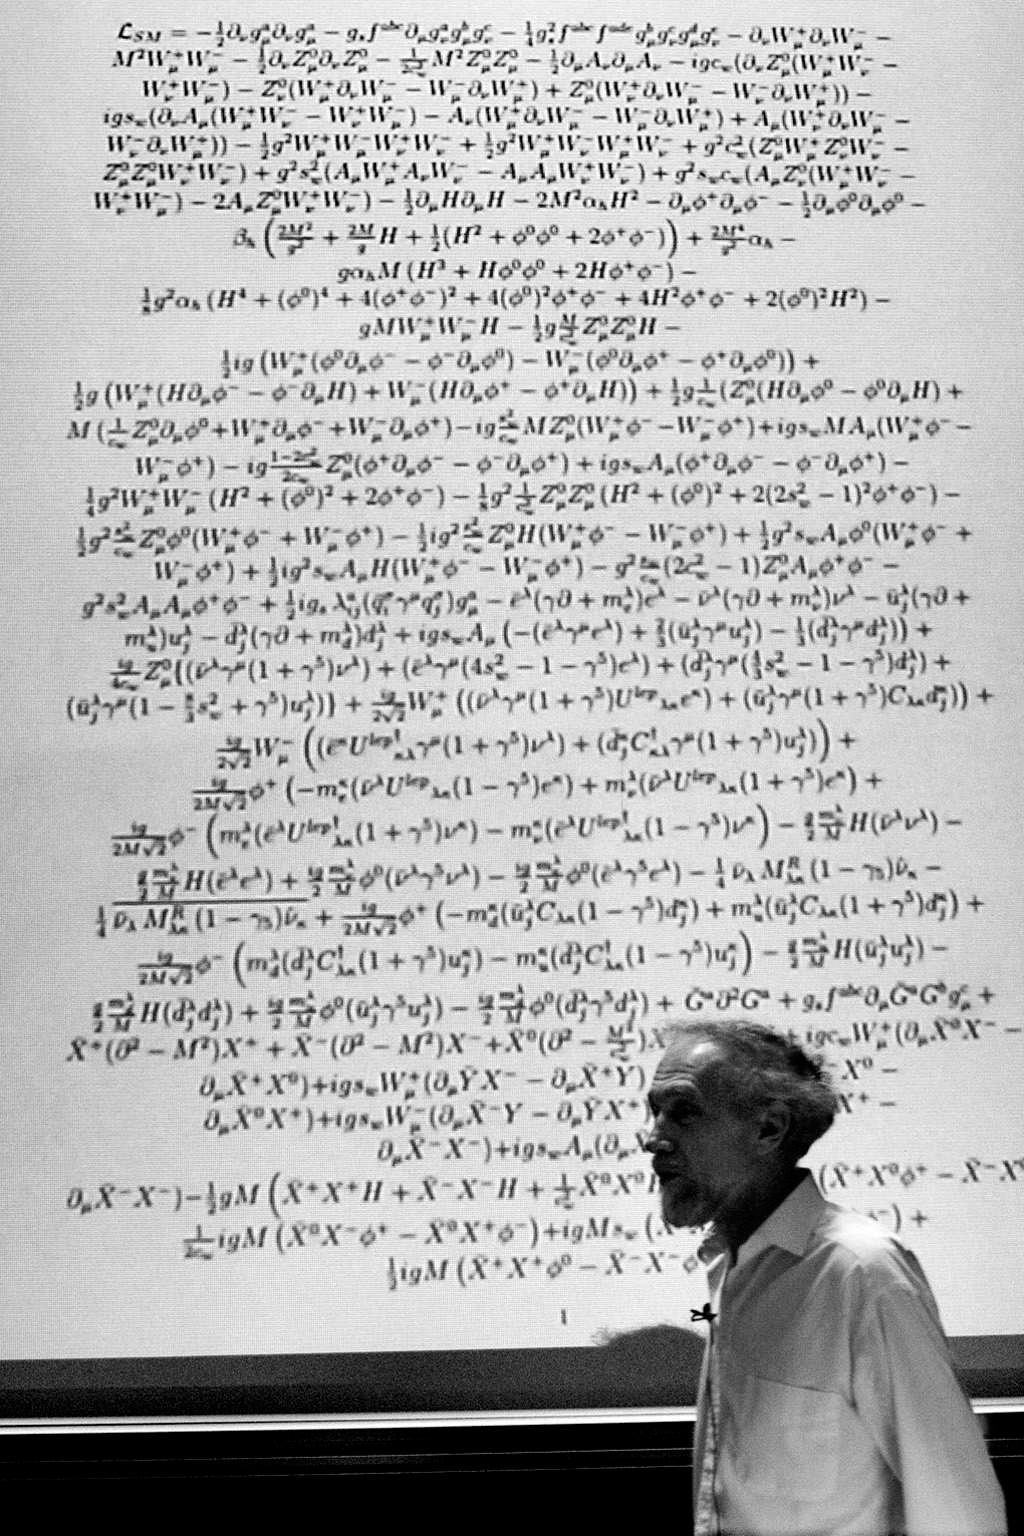 𝓛_SM = −½∂_νg^a_μ∂_νg^a_μ − g_s f^abc ∂_μg^a_νg^b_μg^c_ν − ¼g²_s f^abc f^ade g^b_μg^c_νg^d_μg^e_ν − ∂_νW⁺_μ∂_νW⁻_μ −
M²W⁺_μW⁻_μ − ½∂_νZ⁰_μ∂_νZ⁰_μ − 1/(2c²_w) M²Z⁰_μZ⁰_μ − ½∂_μA_ν∂_μA_ν − igc_w(∂_νZ⁰_μ(W⁺_μW⁻_ν −
W⁺_νW⁻_μ) − Z⁰_ν(W⁺_μ∂_νW⁻_μ − W⁻_μ∂_νW⁺_μ) + Z⁰_μ(W⁺_ν∂_νW⁻_μ − W⁻_ν∂_νW⁺_μ)) −
igs_w(∂_νA_μ(W⁺_μW⁻_ν − W⁺_νW⁻_μ) − A_ν(W⁺_μ∂_νW⁻_μ − W⁻_μ∂_νW⁺_μ) + A_μ(W⁺_ν∂_νW⁻_μ −
W⁻_ν∂_νW⁺_μ)) − ½g²W⁺_μW⁻_μW⁺_νW⁻_ν + ½g²W⁺_μW⁻_νW⁺_μW⁻_ν + g²c²_w(Z⁰_μW⁺_μZ⁰_νW⁻_ν −
Z⁰_μZ⁰_μW⁺_νW⁻_ν) + g²s²_w(A_μW⁺_μA_νW⁻_ν − A_μA_μW⁺_νW⁻_ν) + g²s_wc_w(A_μZ⁰_ν(W⁺_μW⁻_ν −
W⁺_νW⁻_μ) − 2A_μZ⁰_μW⁺_νW⁻_ν) − ½∂_μH∂_μH − 2M²α_hH² − ∂_μφ⁺∂_μφ⁻ − ½∂_μφ⁰∂_μφ⁰ −
β_h (2M²/g² + 2M/g H + ½(H² + φ⁰φ⁰ + 2φ⁺φ⁻)) + 2M⁴/g² α_h −
gα_hM (H³ + Hφ⁰φ⁰ + 2Hφ⁺φ⁻) −
⅛g²α_h (H⁴ + (φ⁰)⁴ + 4(φ⁺φ⁻)² + 4(φ⁰)²φ⁺φ⁻ + 4H²φ⁺φ⁻ + 2(φ⁰)²H²) −
gMW⁺_μW⁻_μH − ½g M/c²_w Z⁰_μZ⁰_μH −
½ig (W⁺_μ(φ⁰∂_μφ⁻ − φ⁻∂_μφ⁰) − W⁻_μ(φ⁰∂_μφ⁺ − φ⁺∂_μφ⁰)) +
½g (W⁺_μ(H∂_μφ⁻ − φ⁻∂_μH) + W⁻_μ(H∂_μφ⁺ − φ⁺∂_μH)) + ½g 1/c_w (Z⁰_μ(H∂_μφ⁰ − φ⁰∂_μH) +
M (1/c_w Z⁰_μ∂_μφ⁰+W⁺_μ∂_μφ⁻+W⁻_μ∂_μφ⁺)−ig s²_w/c_w MZ⁰_μ(W⁺_μφ⁻−W⁻_μφ⁺)+igs_wMA_μ(W⁺_μφ⁻−
W⁻_μφ⁺) − ig (1−2c²_w)/(2c_w) Z⁰_μ(φ⁺∂_μφ⁻ − φ⁻∂_μφ⁺) + igs_wA_μ(φ⁺∂_μφ⁻ − φ⁻∂_μφ⁺) −
¼g²W⁺_μW⁻_μ (H² + (φ⁰)² + 2φ⁺φ⁻) − ⅛g² 1/c²_w Z⁰_μZ⁰_μ (H² + (φ⁰)² + 2(2s²_w − 1)²φ⁺φ⁻) −
½g² s²_w/c_w Z⁰_μφ⁰(W⁺_μφ⁻ + W⁻_μφ⁺) − ½ig² s²_w/c_w Z⁰_μH(W⁺_μφ⁻ − W⁻_μφ⁺) + ½g²s_wA_μφ⁰(W⁺_μφ⁻ +
W⁻_μφ⁺) + ½ig²s_wA_μH(W⁺_μφ⁻ − W⁻_μφ⁺) − g² s_w/c_w (2c²_w − 1)Z⁰_μA_μφ⁺φ⁻ −
g²s²_wA_μA_μφ⁺φ⁻ + ½ig_s λ^a_ij(q̄^σ_iγ^μq^σ_j)g^a_μ − ē^λ(γ∂ + m^λ_e)e^λ − ν̄^λ(γ∂ + m^λ_ν)ν^λ − ū^λ_j(γ∂ +
m^λ_u)u^λ_j − d̄^λ_j(γ∂ + m^λ_d)d^λ_j + igs_wA_μ (−(ē^λγ^μe^λ) + ⅔(ū^λ_jγ^μu^λ_j) − ⅓(d̄^λ_jγ^μd^λ_j)) +
ig/(4c_w) Z⁰_μ{(ν̄^λγ^μ(1 + γ⁵)ν^λ) + (ē^λγ^μ(4s²_w − 1 − γ⁵)e^λ) + (d̄^λ_jγ^μ(4/3 s²_w − 1 − γ⁵)d^λ_j) +
(ū^λ_jγ^μ(1 − 8/3 s²_w + γ⁵)u^λ_j)} + ig/(2√2) W⁺_μ ((ν̄^λγ^μ(1 + γ⁵)U^lep_λκe^κ) + (ū^λ_jγ^μ(1 + γ⁵)C_λκd^κ_j)) +
ig/(2√2) W⁻_μ ((ē^κU^lep†_κλγ^μ(1 + γ⁵)ν^λ) + (d̄^κ_jC†_κλγ^μ(1 + γ⁵)u^λ_j)) +
ig/(2M√2) φ⁺ (−m^κ_e(ν̄^λU^lep_λκ(1 − γ⁵)e^κ) + m^λ_ν(ν̄^λU^lep_λκ(1 + γ⁵)e^κ) +
ig/(2M√2) φ⁻ (m^λ_e(ē^λU^lep†_λκ(1 + γ⁵)ν^κ) − m^κ_ν(ē^λU^lep†_λκ(1 − γ⁵)ν^κ) − g/2 m^λ_ν/M H(ν̄^λν^λ) −
g/2 m^λ_e/M H(ē^λe^λ) + ig/2 m^λ_ν/M φ⁰(ν̄^λγ⁵ν^λ) − ig/2 m^λ_e/M φ⁰(ē^λγ⁵e^λ) − ¼ ν̄_λ M^R_λκ (1 − γ₅)ν̂_κ −
¼ ν̄_λ M^R_λκ (1 − γ₅)ν̂_κ + ig/(2M√2) φ⁺ (−m^κ_d(ū^λ_jC_λκ(1 − γ⁵)d^κ_j) + m^λ_u(ū^λ_jC_λκ(1 + γ⁵)d^κ_j) +
ig/(2M√2) φ⁻ (m^λ_d(d̄^λ_jC†_λκ(1 + γ⁵)u^κ_j) − m^κ_u(d̄^λ_jC†_λκ(1 − γ⁵)u^κ_j) − g/2 m^λ_u/M H(ū^λ_ju^λ_j) −
g/2 m^λ_d/M H(d̄^λ_jd^λ_j) + ig/2 m^λ_u/M φ⁰(ū^λ_jγ⁵u^λ_j) − ig/2 m^λ_d/M φ⁰(d̄^λ_jγ⁵d^λ_j) + Ḡ^a∂²G^a + g_sf^abc∂_μḠ^aG^bg^c_μ +
X̄⁺(∂² − M²)X⁺ + X̄⁻(∂² − M²)X⁻+X̄⁰(∂² − M²/c²_w)X + igc_wW⁺_μ(∂_μX̄⁰X⁻ −
∂_μX̄⁺X⁰)+igs_wW⁺_μ(∂_μȲX⁻ − ∂_μX̄⁺Y) ⁻X⁰ −
∂_μX̄⁰X⁺)+igs_wW⁻_μ(∂_μX̄⁻Y − ∂_μȲX⁺) X⁺ −
∂_μX̄⁻X⁻)+igs_wA_μ(∂_μX
∂_μX̄⁻X⁻)−½gM (X̄⁺X⁺H + X̄⁻X⁻H + 1/c²_w X̄⁰X⁰H (X̄⁺X⁰φ⁺ − X̄⁻X⁰
1/(2c_w) igM (X̄⁰X⁻φ⁺ − X̄⁰X⁺φ⁻)+igMs_w (X φ⁻) +
½igM (X̄⁺X⁺φ⁰ − X̄⁻X⁻φ
1